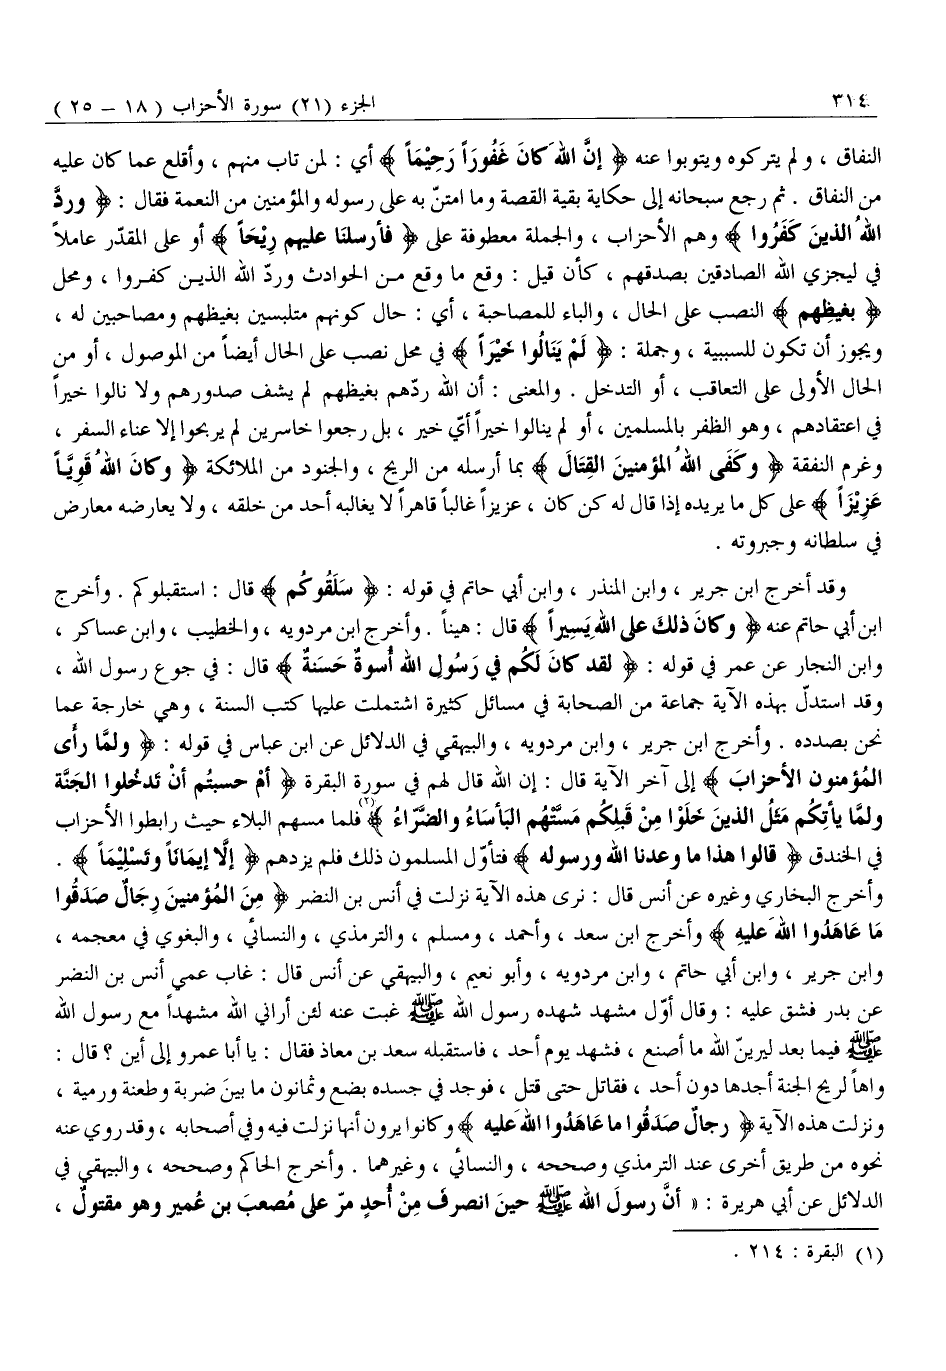 ٣١٤
الجزء (٢١) سورة الأحزاب ( ١٨ – ٢٥ )
النفاق ، ولم يتركوه ويتوبوا عنه ﴿ إنَّ اللهَ كانَ غَفُورَاً رَحِيْمَاً ﴾ أي : لمن تاب منهم ، وأقلع عما كان عليه
من النفاق . ثم رجع سبحانه إلى حكاية بقية القصة وما امتنّ به على رسوله والمؤمنين من النعمة فقال : ﴿ وردَّ
اللهُ الذينَ كَفَرُوا ﴾ وهم الأحزاب ، والجملة معطوفة على ﴿ فأرسلنَا عليهم رِيْحَاً ﴾ أو على المقدّر عاملاً
في ليجزي الله الصادقين بصدقهم ، كأن قيل : وقع ما وقع من الحوادث وردّ الله الذين كفروا ، ومحل
﴿ بغيظِهم ﴾ النصب على الحال ، والباء للمصاحبة ، أي : حال كونهم متلبسين بغيظهم ومصاحبين له ،
ويجوز أن تكون للسببية ، وجملة : ﴿ لَمْ يَنَالُوا خَيْرَاً ﴾ في محل نصب على الحال أيضاً من الموصول ، أو من
الحال الأولى على التعاقب ، أو التدخل . والمعنى : أن الله ردّهم بغيظهم لم يشف صدورهم ولا نالوا خيراً
في اعتقادهم ، وهو الظفر بالمسلمين ، أو لم ينالوا خيراً أيّ خير ، بل رجعوا خاسرين لم يربحوا إلا عناء السفر ،
وغرم النفقة ﴿ وكَفَى اللهُ المؤمنينَ القِتَالَ ﴾ بما أرسله من الريح ، والجنود من الملائكة ﴿ وكانَ اللهُ قَويَّاً
عَزِيْزَاً ﴾ على كل ما يريده إذا قال له كن كان ، عزيزاً غالباً قاهراً لا يغالبه أحد من خلقه ، ولا يعارضه معارض
في سلطانه وجبروته .
وقد أخرج ابن جرير ، وابن المنذر ، وابن أبي حاتم في قوله : ﴿ سَلَقُوكُم ﴾ قال : استقبلوكم . وأخرج
ابن أبي حاتم عنه ﴿ وكانَ ذلكَ على اللهِ يَسِيراً ﴾ قال : هيناً . وأخرج ابن مردويه ، والخطيب ، وابن عساكر ،
وابن النجار عن عمر في قوله : ﴿ لقد كانَ لَكُم في رَسُولِ الله أُسوةٌ حَسَنةٌ ﴾ قال : في جوع رسول الله ،
وقد استدلّ بهذه الآية جماعة من الصحابة في مسائل كثيرة اشتملت عليها كتب السنة ، وهي خارجة عما
نحن بصدده . وأخرج ابن جرير ، وابن مردويه ، والبيهقي في الدلائل عن ابن عباس في قوله : ﴿ ولمَّا رأى
المُؤمنون الأحزابَ ﴾ إلى آخر الآية قال : إن الله قال لهم في سورة البقرة ﴿ أمْ حسبتُم أنْ تَدخُلوا الجَنَّة
ولمَّا يأتكُم مَثَلُ الذينَ خَلَوْا مِنْ قَبلِكُم مَسَّتْهُم البَأساءُ والضَّرَّاءُ ﴾(٢) فلما مسهم البلاء حيث رابطوا الأحزاب
في الخندق ﴿ قالوا هذا ما وعدنا الله ورسوله ﴾ فتأوّل المسلمون ذلك فلم يزدهم ﴿ إلَّا إيمَاناً وتَسْلِيْمَاً ﴾ .
وأخرج البخاري وغيره عن أنس قال : نرى هذه الآية نزلت في أنس بن النضر ﴿ مِنَ المُؤمنينَ رِجَالٌ صَدَقُوا
مَا عَاهَدُوا اللهَ عَليهِ ﴾ وأخرج ابن سعد ، وأحمد ، ومسلم ، والترمذي ، والنسائي ، والبغوي في معجمه ،
وابن جرير ، وابن أبي حاتم ، وابن مردويه ، وأبو نعيم ، والبيهقي عن أنس قال : غاب عمي أنس بن النضر
عن بدر فشق عليه : وقال أوّل مشهد شهده رسول الله ﷺ غبت عنه لئن أراني الله مشهداً مع رسول الله
ﷺ فيما بعد ليرينّ الله ما أصنع ، فشهد يوم أحد ، فاستقبله سعد بن معاذ فقال : يا أبا عمرو إلى أين ؟ قال :
واهاً لريح الجنة أجدها دون أحد ، فقاتل حتى قتل ، فوجد في جسده بضع وثمانون ما بينَ ضربة وطعنة ورمية ،
ونزلت هذه الآية ﴿ رجالٌ صَدَقُوا ما عَاهَدُوا اللهَ عَليه ﴾ وكانوا يرون أنها نزلت فيه وفي أصحابه ، وقد روي عنه
نحوه من طريق أخرى عند الترمذي وصححه ، والنسائي ، وغيرهما . وأخرج الحاكم وصححه ، والبيهقي في
الدلائل عن أبي هريرة : « أنَّ رسولَ الله ﷺ حينَ انصرفَ مِنْ أُحدٍ مرّ على مُصعبَ بن عُمير وهو مقتولٌ ،
(١) البقرة : ٢١٤ .